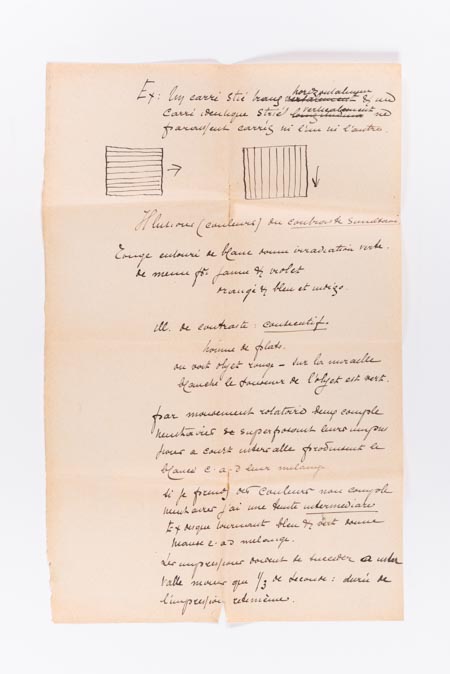 horizontalement
Ex: Un carré strié & un
carré identique strié verticalement ne
paraissent carrés ni l'un ni l'autre.
Illusions (couleurs) du contraste simultané
rouge entouré de blanc donne irradiation verte.
de même pr. jaune & violet
orangé & bleu et indigo.
Ill. de contraste: consécutif.
on voit objet rouge - sur la muraille
blanche le souvenir de l'objet est vert.
par mouvement rotatoire deux complé
mentaires se superposant leurs
pour a court intervalle produisent le
blanc c-a-d leur mélange
Si je prends des couleurs non complé
mentaires j'ai une teinte intermédiaire
Ex disque tournant bleu & vert donne
c-a-d mélange.
Les impressions doivent se succéder a inter
valle moins que 1/3 de seconde: durée de
l'impression rétinienne.